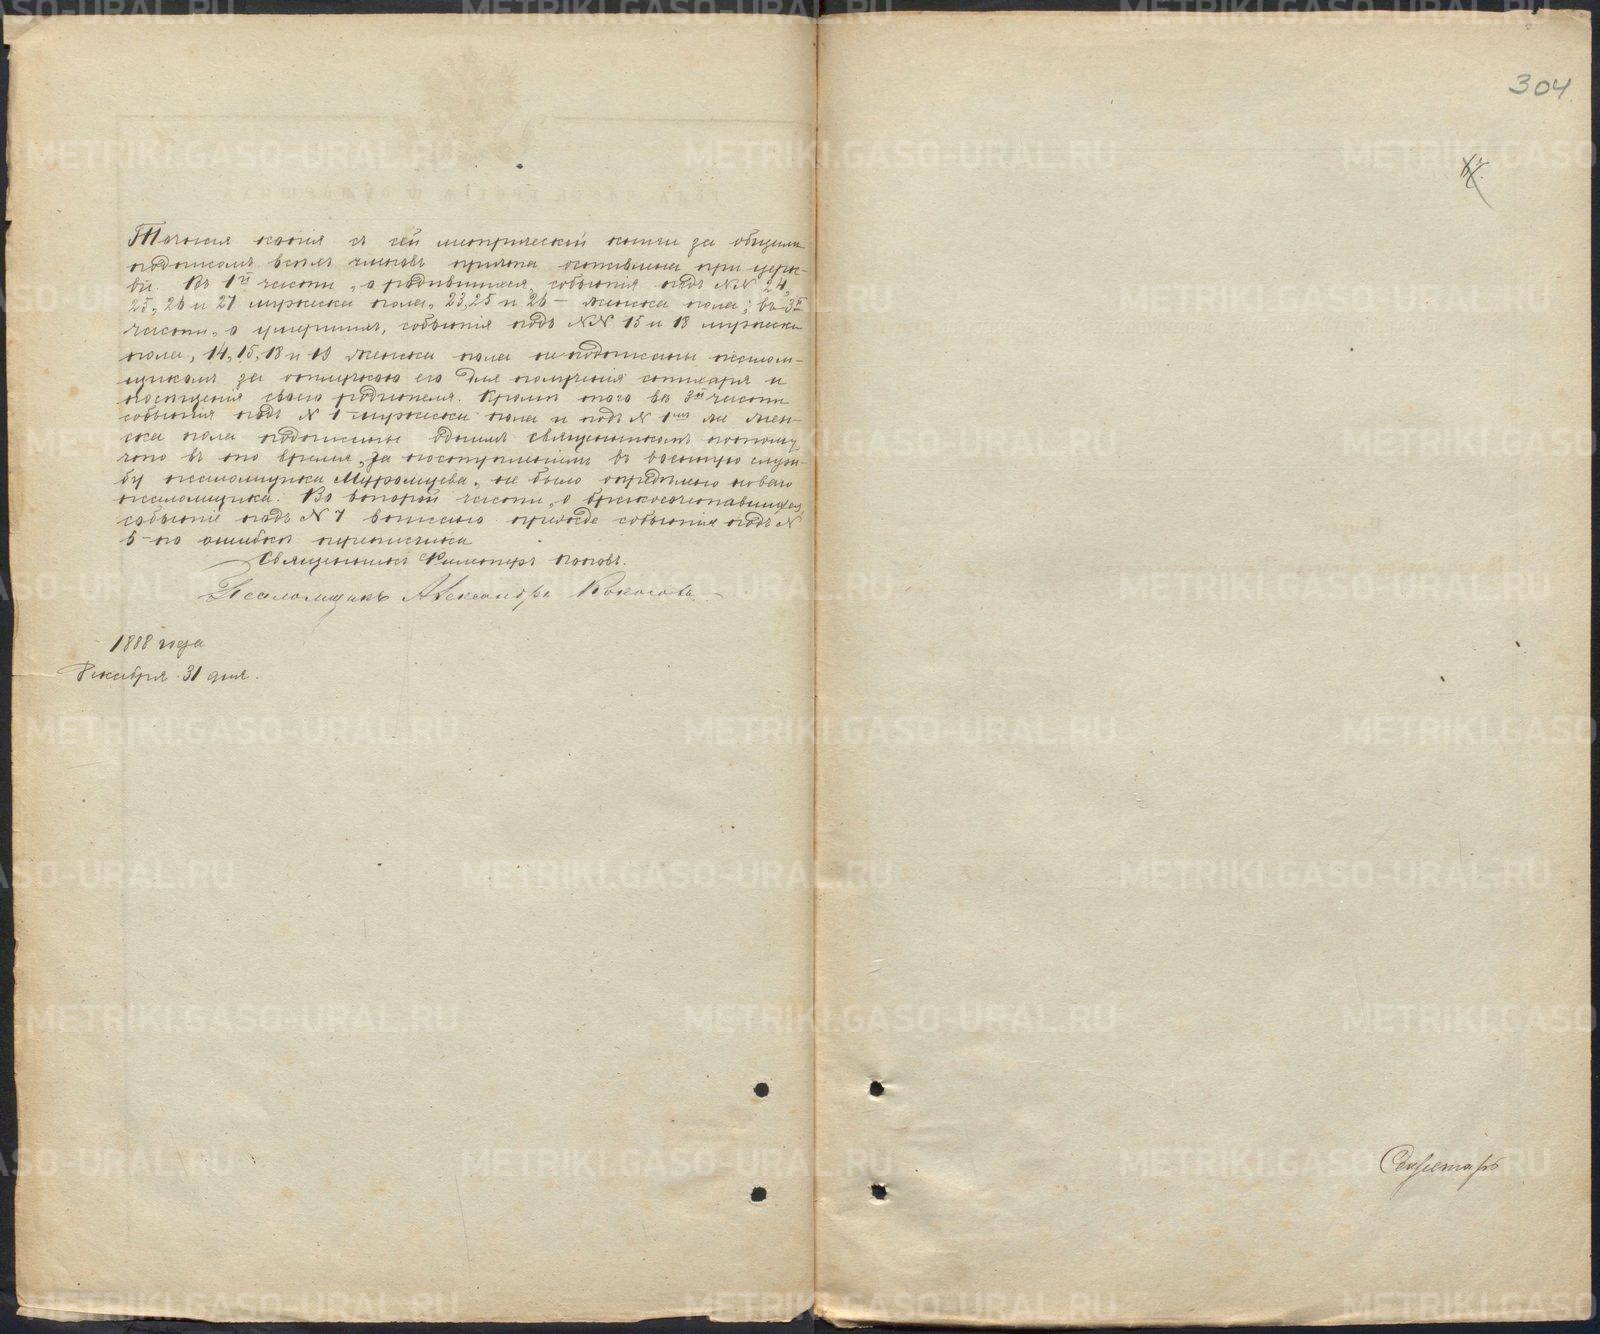 304.
Точная копія съ сей метрической книги за общимъ
подписомъ всѣхъ членовъ причта оставлена при церк-
ви. Въ 1й части „о родившихся“ событія подъ №№ 24,
25, 26 и 27 мужеска пола, 23, 25 и 26 – женска пола; въ 3й
части „о умершихъ“, событія подъ №№ 15 и 18 мужеска
пола, 14, 15, 18 и 19 женска пола не подписаны псалом-
щикомъ за отлучкою его для полученія стихаря и
посѣщенія своего родителя. Кромѣ того въ 3й части
событія подъ № 1 мужеска пола и подъ № 1мъ же жен-
ска пола подписаны однимъ священникомъ потому,
что въ то время, за поступленіемъ въ военную служ-
бу псаломщика, не было опредѣлено новаго
псаломщика. Во второй части „о бракосочетавшихся“
событіе подъ № 7 вписано прежде событія подъ №
6 по ошибкѣ переписчика
Священникъ Поповъ.
Псаломщикъ Александръ
1888 года
Декабря 31 дня.
Секретарь
METRIKI.GASO-URAL.RU